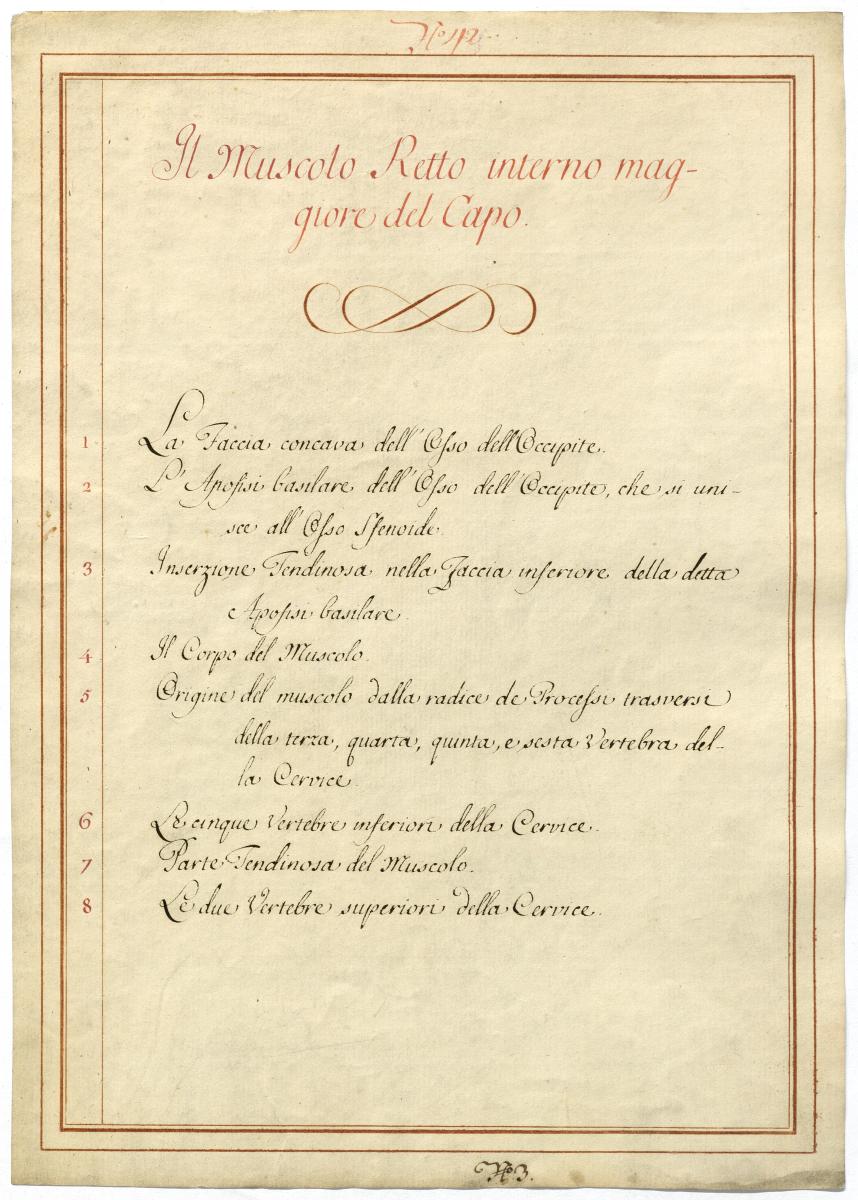 No. 12.
Il Muscolo Retto interno mag-
giore del Capo.
1 La Faccia concava dell'Osso dell'Occipite.
2 L'Apofisi basilare dell'Osso dell'Occipite, che si uni-
sce all'Osso Sfenoide.
3 Inserzione Tendinosa nella Faccia inferiore della detta
Apofisi basilare.
4 Il Corpo del Muscolo.
5 Origine del muscolo dalla radice de Processi trasversi
della terza, quarta, quinta, e sesta Vertebra del-
la Cervice.
6 Le cinque Vertebre inferiori della Cervice.
7 Parte Tendinosa del Muscolo.
8 Le due Vertebre superiori della Cervice.
No. 3.